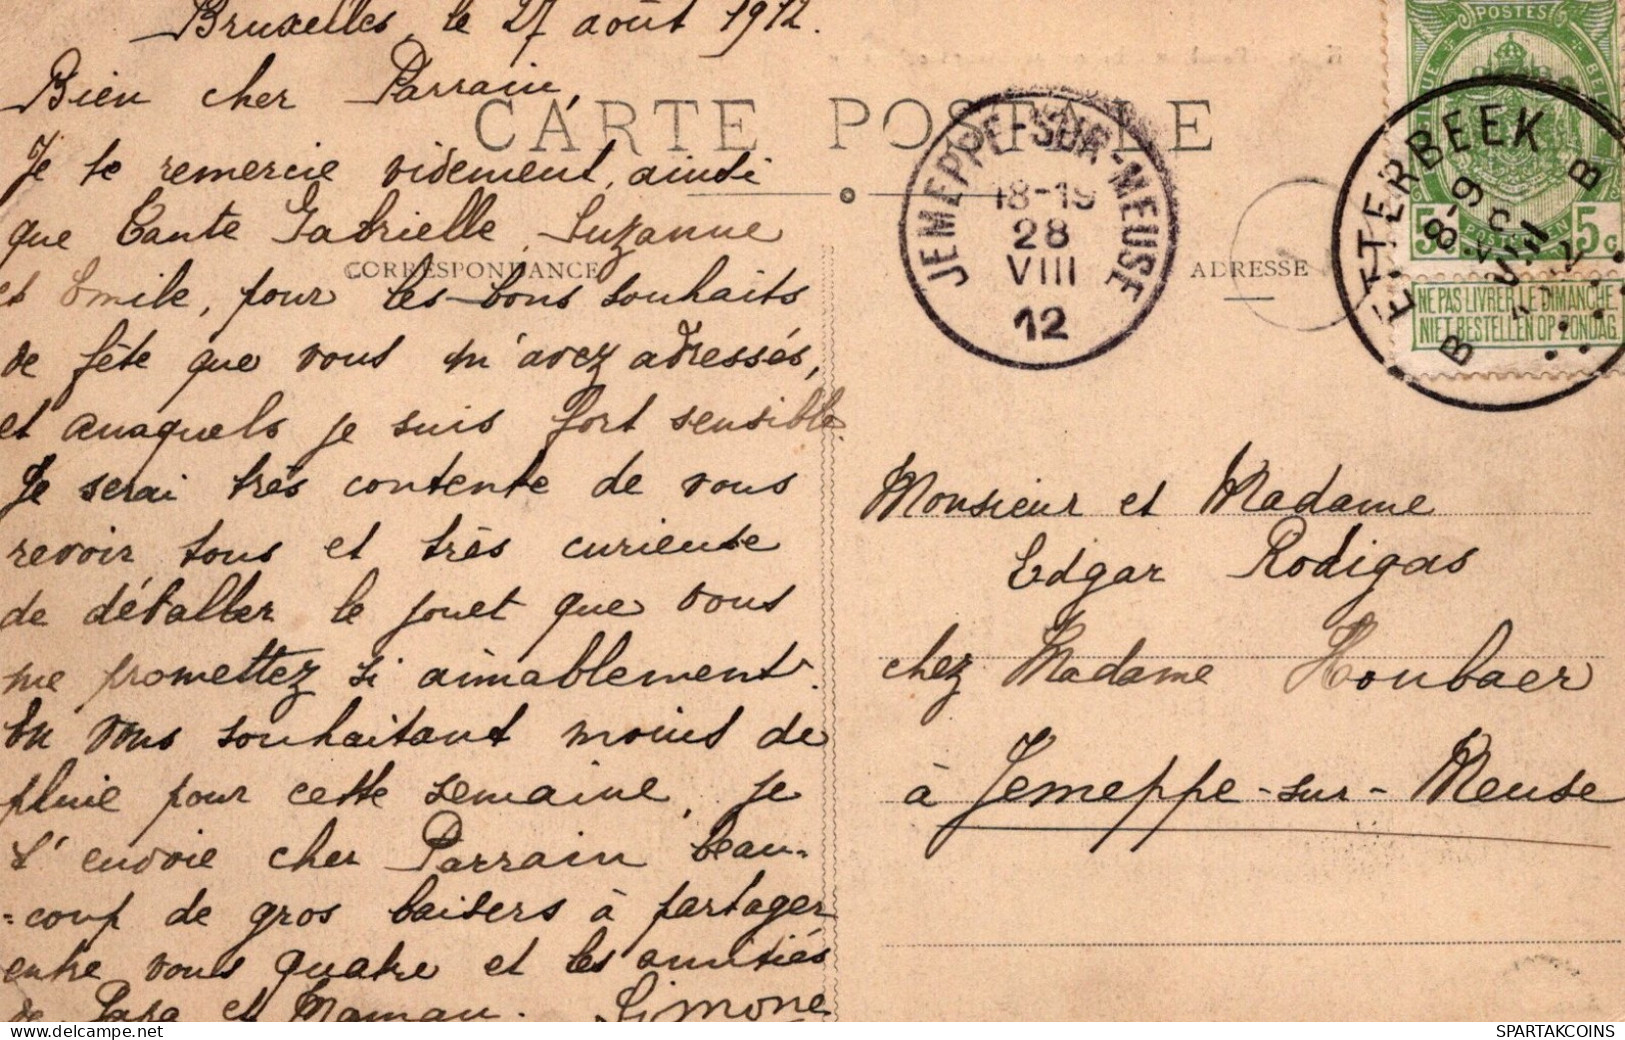 Bruxelles, le 27 août 1912.
Bien cher Parrain,
CARTE POSTALE
Je te remercie vivement, ainsi
que Tante Gabrielle, Suzanne
CORRESPONDANCE
et Emile, pour les bons souhaits
de fête que vous m'avez adressés,
et auxquels je suis fort sensible.
Je serai très contente de vous
revoir tous et très curieuse
de déballer le jouet que vous
me promettez si aimablement.
En vous souhaitant moins de
pluie pour cette semaine, je
t'envoie cher Parrain beau-
=coup de gros baisers à partager
entre vous quatre et les amitiés
de Papa et Maman. Simone
JEMEPPE-SUR-MEUSE
18-19
28
VIII
12
ADRESSE
POSTES
BELGIQUE
5
POSTERIJEN
5c
NE PAS LIVRER LE DIMANCHE
NIET BESTELLEN OP ZONDAG
ETTERBEEK
8-9
VIII
B
B
Monsieur et Madame
Edgar Rodigas
chez Madame Houbaer
à Jemeppe-sur-Meuse
SPARTAKCOINS
www.delcampe.net